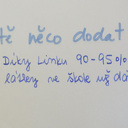 tě něco dodat
Díky Linku 90-95%
lásky ne škole už dá